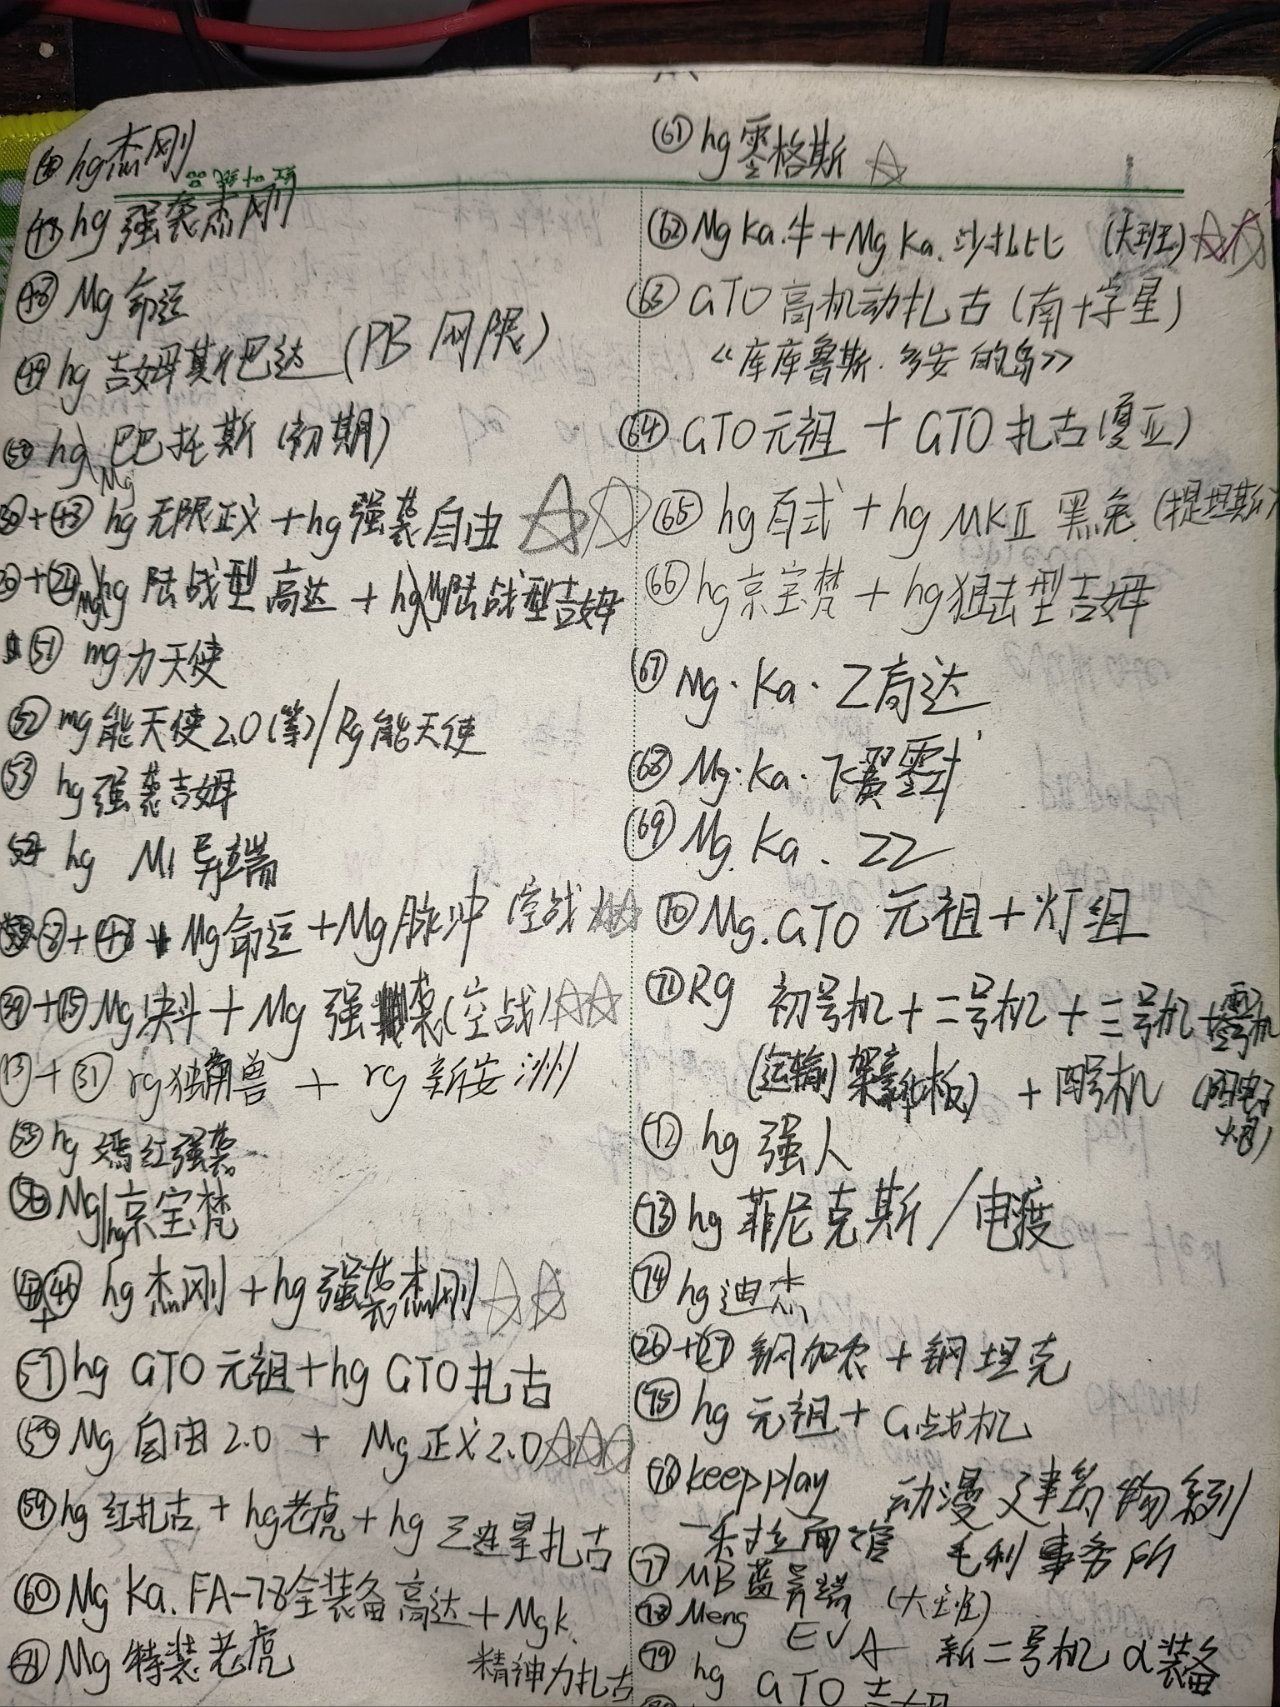 ㊻ hg杰刚
㊼ hg 强袭杰刚
㊽ Mg 命运
㊾ hg 吉姆其仳巴达 (PB 网限)
㊿ hg 巴巴托斯 (初期)
Mg
+㊸ hg 无限正义 + hg 强袭自由 ☆☆
+㉔ Mg hg 陆战型高达 + hg Mg陆战型吉姆
51 mg力天使
52 mg能天使2.0(等)/Rg能天使
53 hg强袭吉姆
54 hg M1 异端
⑧+㊽ Mg命运+Mg脉冲 空战 ☆☆
㊴+⑮ Mg决斗 + Mg 强袭(空战)☆☆
⑬+㉛ rg独角兽 + rg 新安洲
55 hg 嫣红强袭
56 Mg/hg京宝梵
㊻+㊼ hg 杰刚 + hg 强袭杰刚 ☆☆
57 hg GTO 元祖+hg GTO 扎古
58 Mg 自由 2.0 + Mg 正义 2.0 ☆☆☆
59 hg 红扎古 + hg老虎 + hg 三连星扎古
60 Mg Ka. FA-78全装备高达 + Mg K.
精神力扎古
Mg 特装老虎
红叶纸品
61 hg 墨格斯 ☆
62 Mg Ka.牛+Mg Ka.沙扎比 (大班) ☆☆
63 GTO 高机动扎古 (南十字星)
《库库鲁斯.多安的岛》
64 GTO元祖 + GTO 扎古(夏亚)
65 hg百式 + hg MKⅡ 黑兔 (提坦斯)
66 hg京宝梵 + hg狙击型吉姆
67 Mg·Ka·Z高达
68 Mg·Ka·飞翼零式
69 Mg.Ka.ZZ
70 Mg.GTO 元祖+灯组
71 Rg 初号机+二号机+三号机+零号机
(运输架) + 四号机 (阳电子炮)
72 hg 强人
73 hg 菲尼克斯/电渡
74 hg迪杰
㉖+㉗ 钢加农+钢坦克
75 hg 元祖+G战机
76 keepplay 动漫建筑物系列
一乐拉面馆 毛利事务所
77 MB蓝异端 (大班)
78 Meng EVA 新二号机 α装备
79 hg GTO 吉姆